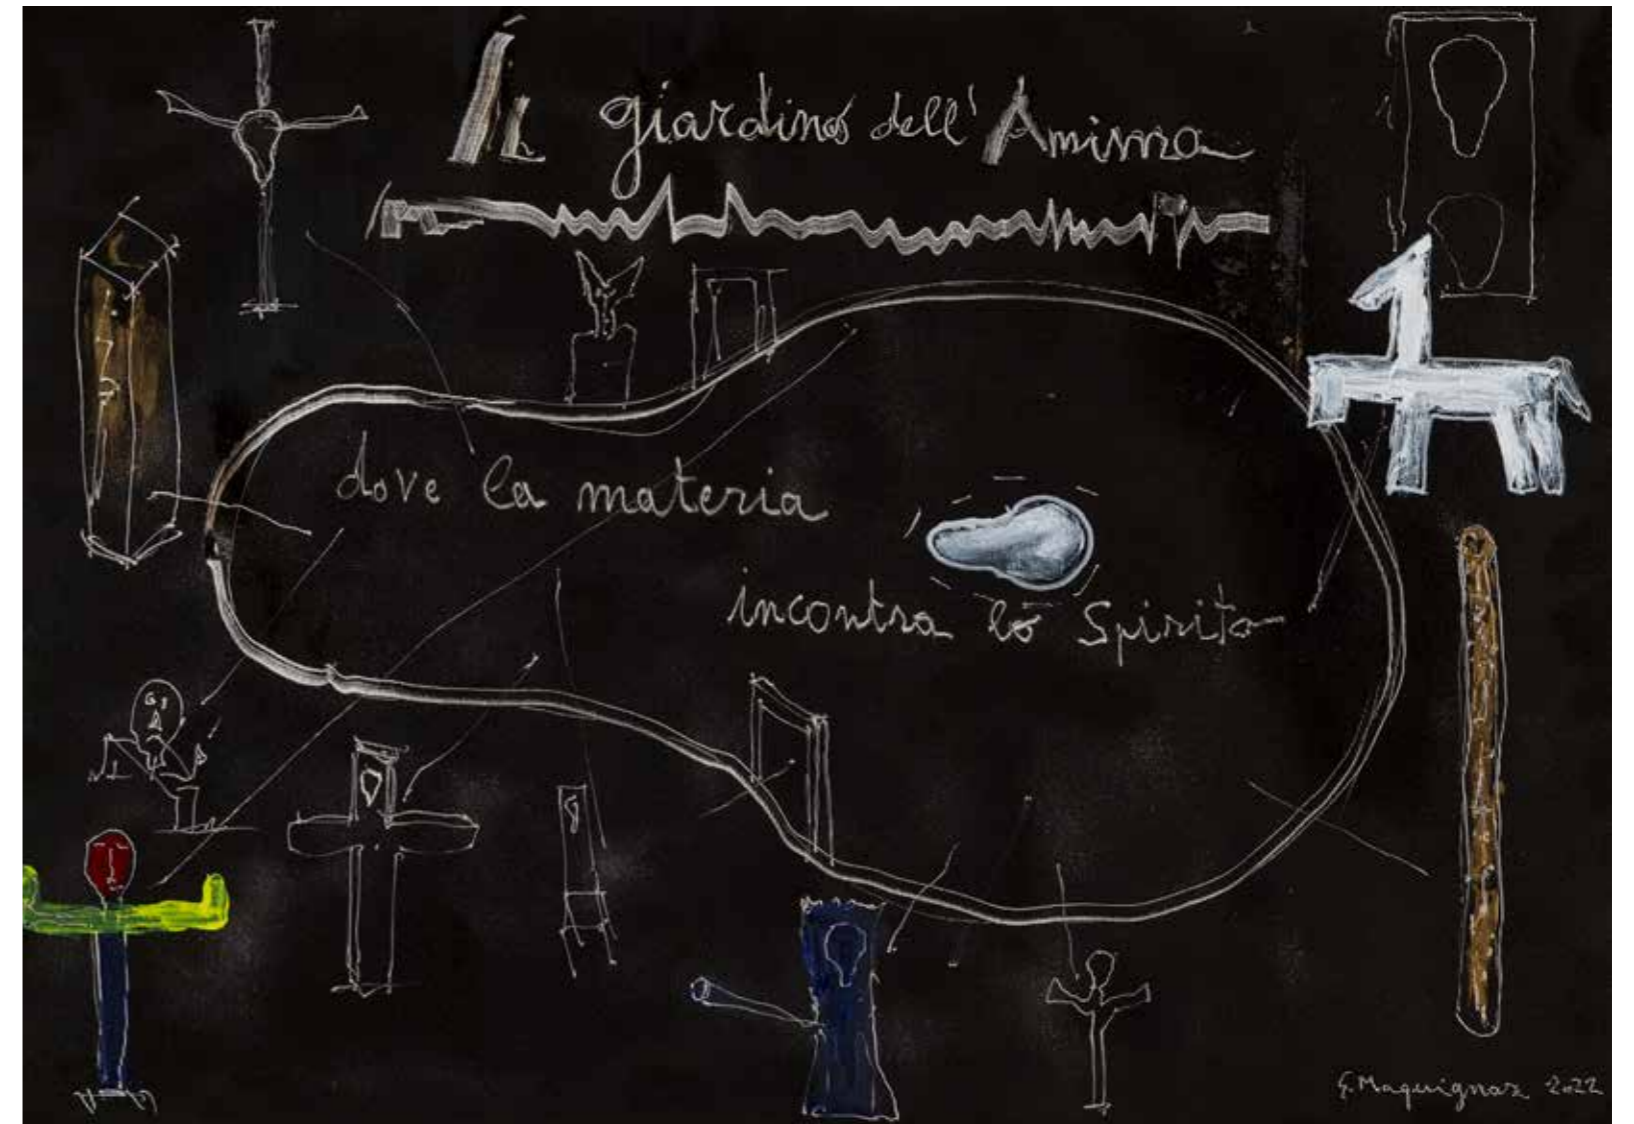 Il giardino dell'Anima
dove la materia
incontra lo Spirito
G. Maquignaz 2022